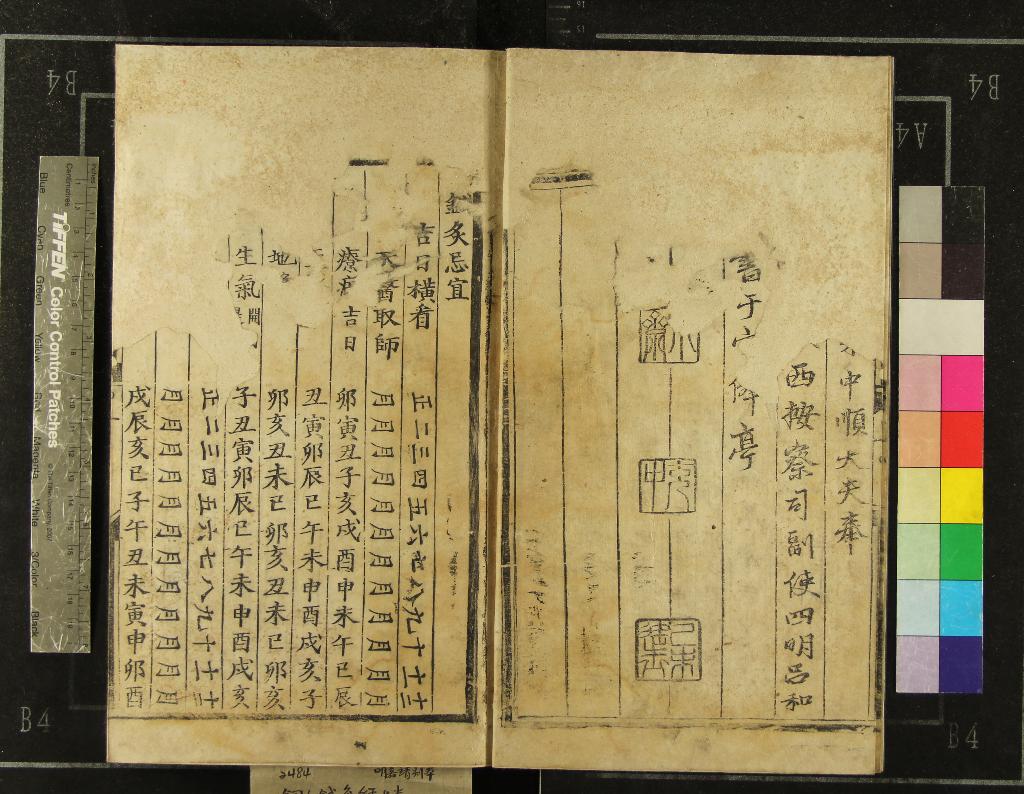 中順大夫奉
西按察司副使四明呂和
書于
亭
己未進士
灸忌宜
吉日橫看 正二三四五六七八九十十一十二
醫取師 月月月月月月月月月月月月
療 吉日 卯寅丑子亥戌酉申未午巳辰
丑寅卯辰巳午未申酉戌亥子
地 卯亥丑未巳卯亥丑未巳卯亥
生氣 開 子丑寅卯辰巳午未申酉戌亥
正二三四五六七八九十十一十二
月月月月月月月月月月月月
戌辰亥巳子午丑未寅申卯酉
TIFFEN Color Control Patches
Blue
Cyan
Green
Yellow
Red
Magenta
White
3/Color
Black
Centimetres
Inches
B4
B4
A4
B4
B4
2484
明嘉靖刻本